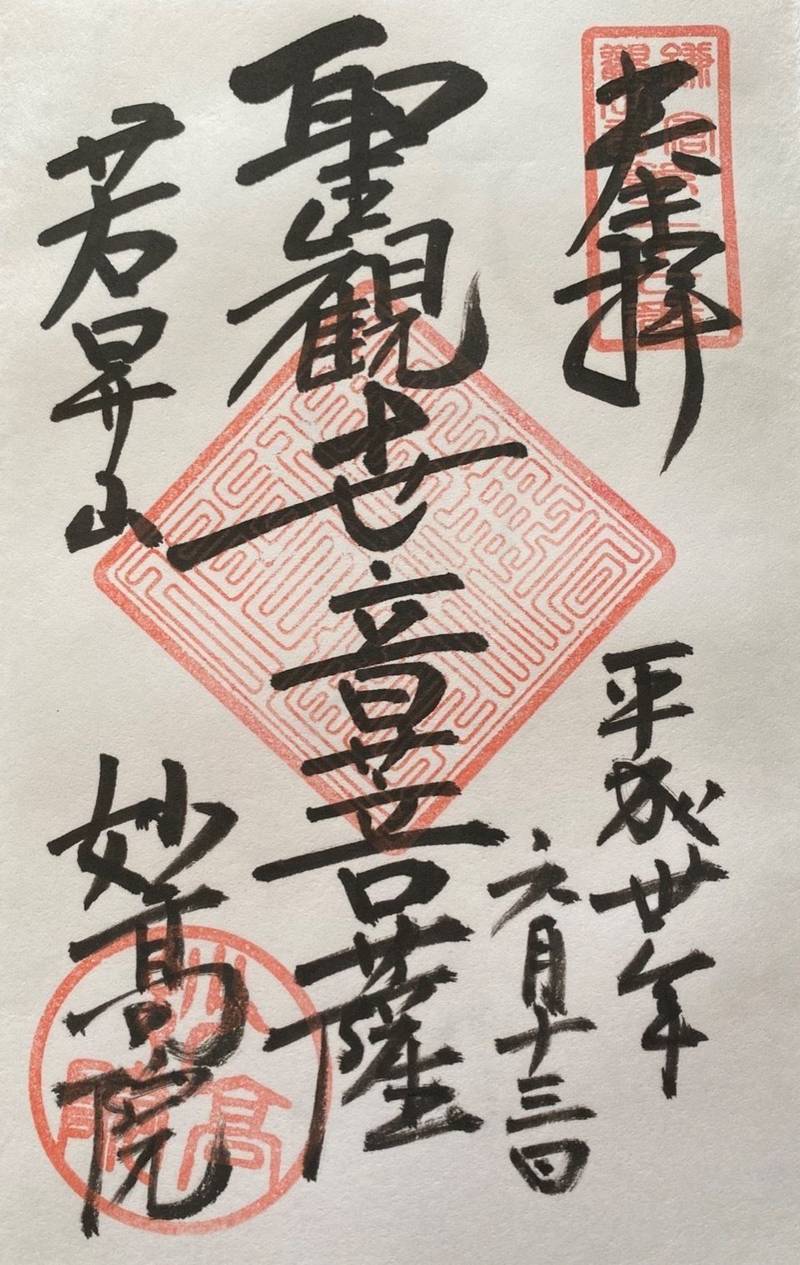 奉拝
平成廿年
六月十三日
聖觀世音菩薩
若昇山
妙高院